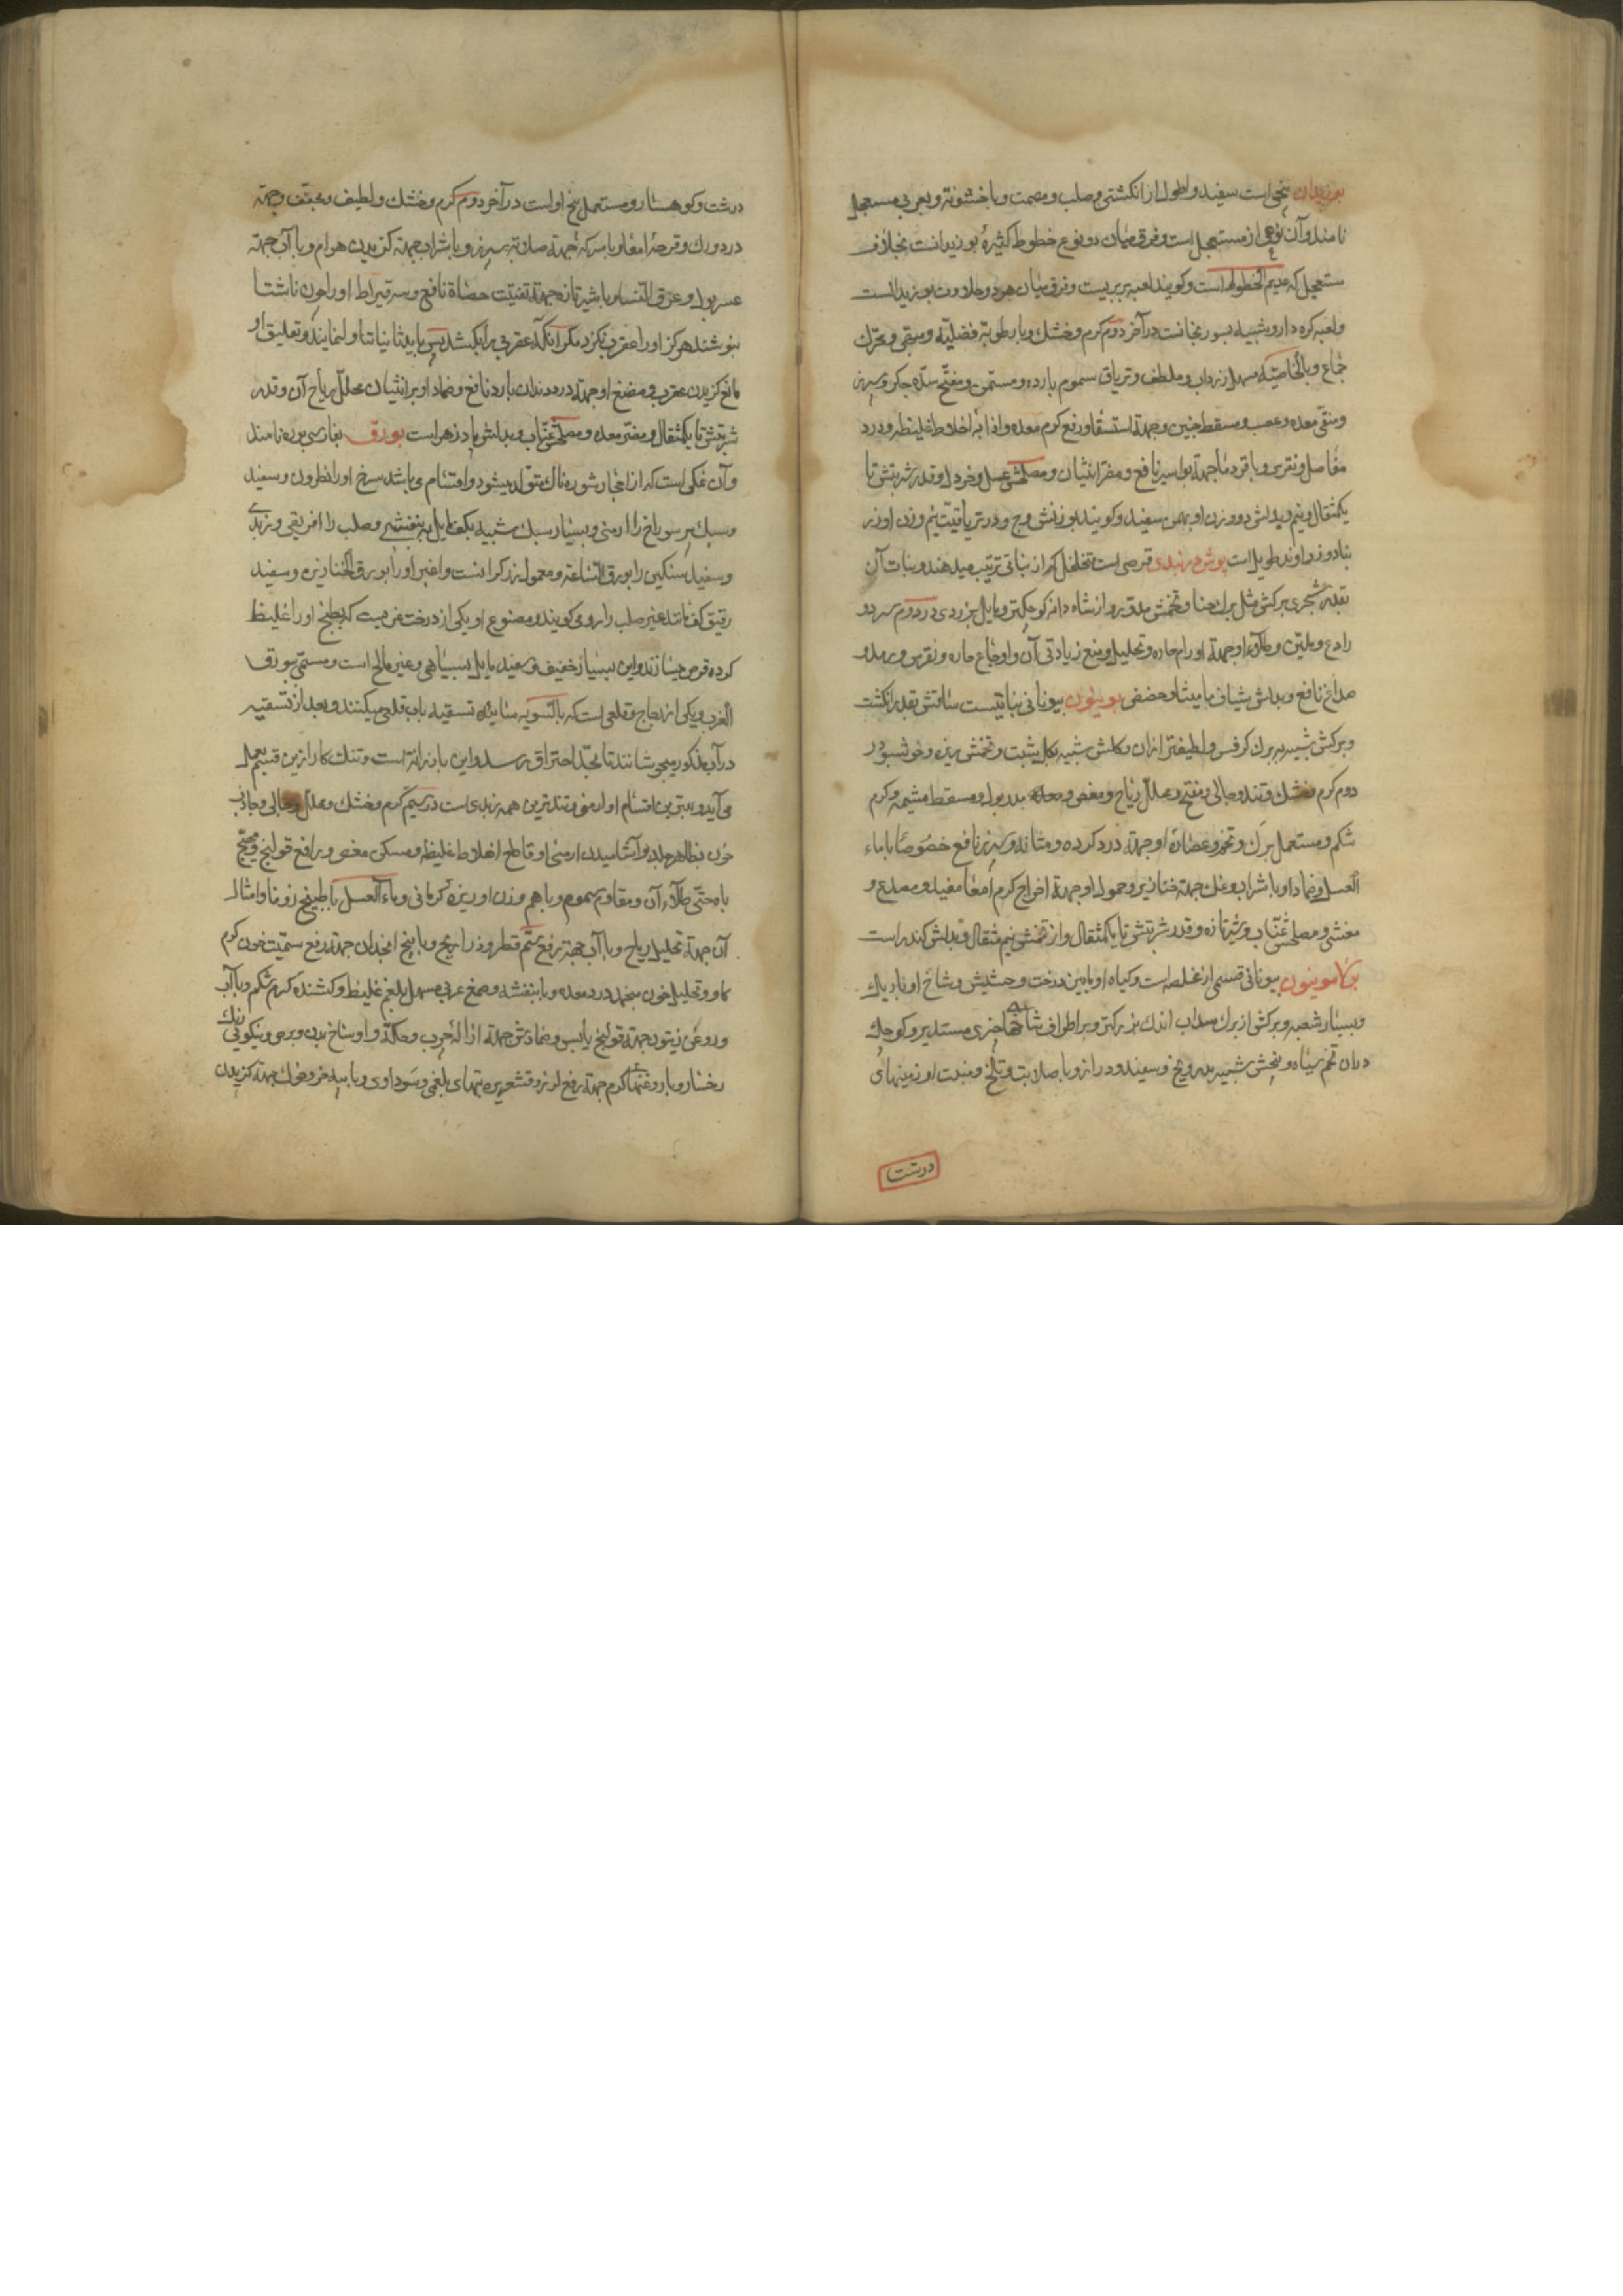 بوزیدان بیخی است سفید و بطول از انکشتی و صلب و مصمت و با خشونة و بعربی مستعجل
نامند و آن نوعی از مستعجل است و فرق میان دو نوع خطوط کثیرهٔ بوزیدانست بخلاف
مستعجل که عدیم الخطوط است و کویند لعبه بربریست و فرق میان هر دو حلاوت بوزیدانست
ولعبه کره دارو شبیه بسورنجانست در آخر دوم کرم و خشک و با رطوبة فضلیّه و مبهّی و محرّک
جماع و بالخاصیّه مسهل زرداب و ملطف و تریاق سموم بارده و مسمّن و مفتّح سدّه جکر و سپرز
و منقّی معده و عصب و مسقط جنین و جهة استسقا و رفع کرم معده و اذابهٔ اخلاط غلیظه و درد
مفاصل و نقرس و با قردمانا جهة بواسیر نافع و مضرّ انثیان و مصلحش عسل و خردل و قدر شربتش تا
یکمثقال و نیم و بدلش دو وزن او بهمن سفید و کویند بوزنش وج و در تریاقیّت نیم وزن او زر
نباد و زراوند طویل است بوش دربندی قرصی است متخلخل که از نباتی ترتیب میدهند و نبات آن
بقدر شجری برکش مثل برک حنا و تخمش مدوّر و از شاه دانه کوچکتر و مایل بزردی در دوم سرد و
رادع و ملیّن و طلاء او جهة اورام حاره و تحلیل و منع زیادتی آن و اوجاع حاره و نقرس و رمد و
صداع نافع و بدلش شیاف مامیثا و حضض بوینون بیونانی نباتیست ساقش بقدر انکشت
و برکش شبیه ببرک کرفس و لطیفتر از آن و کلش شبیه بکل شبت و تخمش ریزه و خوشبو در
دوم کرم و خشک و تند و جالی و مفتح و محلل ریاح و مغص و مدر بول و مسقط مشیمه و کرم
شکم و مستعمل برک و تخم و عصارهٔ او جهة درد کرده و مثانه و سپرز نافع خصوصًا با ماء
العسل و ضماد او با شراب و نمک جهة خنازیر و حمول او جهة اخراج کرم امعا مفید و مصدع و
مغشی و مصلحش عنّاب و شیر تازه و قدر شربتش تا یکمثقال و از تخمش نیم مثقال و بدلش کندر است
بوکامونیون بیونانی قسمی از غلصه است و کیاه او مابین درخت و حشیش و شاخ او باریک
و بسیار شعبه و برکش از برک سداب اندک بزرکتر و بر اطراف شاخها چیزی مستدیر و کوچک
در آن تخم سیاه و بیخش شبیه بدرونج و سفید و دراز و با صلابت و تلخ و منبت او زمینهای
درشت
درشت و کوهسار و مستعمل بیخ او است در آخر دوم کرم و خشک و لطیف و مجفّف و جهة
درد ورک و قرحهٔ امعا و با سرکه جهة صلابة سپرز و با شراب جهة کزیدن هوام و با آب جهة
عسر بول و عرق النّسا و با شیر تازه جهة تفتیت حصاة نافع و سه قیراط او را چون ناشتا
بنوشند هرکز او را عقرب نکزد مکر آنکه عقربی را بکشد پس باید ثانیا تناول نمایند و تعلیق او
مانع کزیدن عقرب و مضغ او جهة درد دندان بارد نافع و ضماد او بر انثیان محلّل ریاح آن و قدر
شربتش تا یکمثقال و مضرّ معده و مصلحش عنّاب و بدلش پادزهر است بورق بفارسی بوره نامند
و آن نمکی است که از انجار شوره ناک تولّد میشود و اقسام می باشد سرخ او را نطرون و سفید
و سبک پر سوراخ را ارمنی و بسیار سبک شبیه بکف مایل ببنفشی و صلب را افریقی و زبدی
و سفید سنکین را بورق الصّناعة و معمول زرکرانست و اغبر او را بورق الخبازین و سفید
رقیق کف مانند غیر صلب را رومی کویند و مصنوع او یکی از درخت غرب است که بطبخ او را غلیظ
کرده قرص میسازند و این بسیار خفیف و سفید مایل بسیاهی و غیر مالح است و مسمّی ببورق
الغرب و یکی از زجاج و قلعی است که بالسّویه سائیده تسقیه بآب قلی میکنند و بعد از تسقیه
در آب مذکور میجوشانند تا بحدّ احتراق رسد و این بارزانة است و تنک کار ازین قسم بعمل
می آید و بهترین اقسام او ارمنی و تندترین همه زبدی است در سیم کرم و خشک و محلل و جالی و جاذب
خون بظاهر جلد و آشامیدن ارمنی او قاطع اخلاط غلیظه و مسکن مغص و رافع قولنج و مهیّج
باه حتّی طلاء آن و مقاوم سموم و با هم وزن او زیرهٔ کرمانی و ماء العسل یا طبیخ زوفا و امثال
آن جهة تحلیل ریاح و با آب جهة رفع سمّ قطر و ذراریح و با بیخ انجدان جهة رفع سمّیت خون کرم
کاو و تحلیل خون منجمد در معده و با بنفشه و صمغ عربی مسهل بلغم غلیظ و کشندهٔ کرم شکم و با آب
و روغن زیتون جهة قولنج یابس و ضمادش جهة ازالهٔ جرب و حکّه و اوساخ بدن و برص و نیکویی رنک
رخسار و با روغنها کرم جهة رفع لرز و قشعریره تبهای بلغمی و سوداوی و با پیه خر و خوک جهة کزیدن